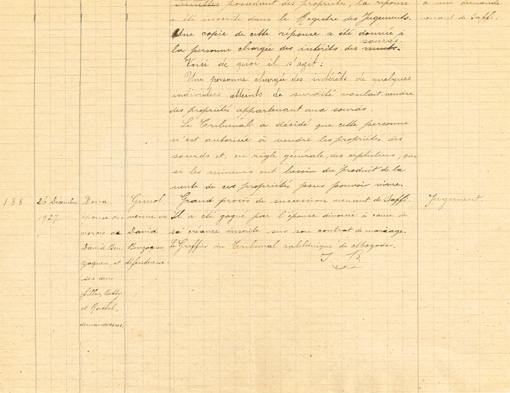 possédant des propriétés, la réponse
a été inscrite dans le Registre des Jugements.
Une copie de cette réponse a été donnée à
sourds.
la personne chargée des intérêts des
Voici de quoi il s'agit:
Une personne chargée des intérêts de quelques
individus atteints de surdité voulait vendre
des propriétés appartenant aux sourds.
Le Tribunal a décidé que cette personne
n'est autorisée à vendre les propriétés des
sourds et, en règle générale, des orphelins, que
si les mineurs ont besoin du produit de la
vente de ces propriétés pour pouvoir vivre.
à une demande
venant de Saffi.
188
26 Décembre
927
Dona
David Ben
et
ses deux
filles, Esther
et Rachel,
Guimol
David
Benzaquen,
défenderesse
Grand procès de succession venant de Saffi.
Il a été gagné par l'épouse divorcée à cause de
sa créance inscrite sur son contrat de mariage.
Le Greffier du Tribunal rabbinique de Mogador.
Jugement